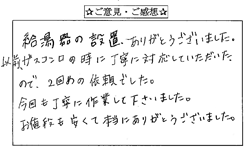 ☆ご意見・ご感想☆
給湯器の設置、ありがとうございました。
以前ガスコンロの時に丁寧に対応していただいた
ので、2回めの依頼でした。
今回も丁寧に作業して下さいました。
お値段も安くて本当にありがとうございました。